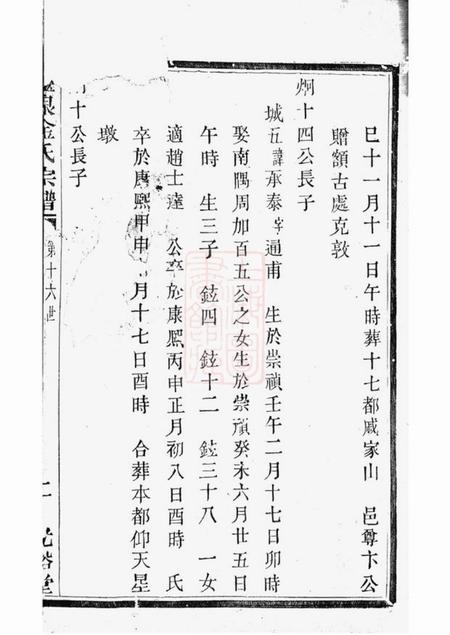 巳十一月十一日午時葬十七都戚家山　邑尊卞公
贈額古處克敦
炯十四公長子
城五諱承泰字通甫　生於崇禎壬午二月十七日卯時
娶南隅周加百五公之女生於崇禎癸未六月廿五日
午時　生三子　鉉四　鉉十二　鉉三十八　一女
適趙士達　公卒於康熙丙申正月初八日酉時　氏
卒於康熙甲申月十七日酉時　合葬本都仰天星
墩
十公長子
泉金氏宗譜
第十六世
光裕堂